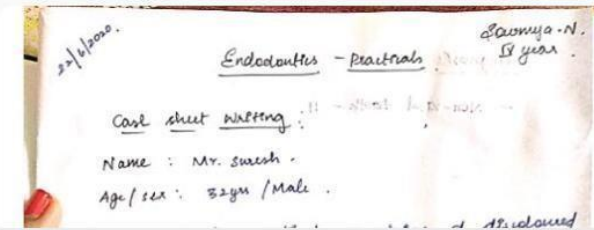 22/6/2020.
Sowmya.N.
IV year.
Endodontics - Practicals
Case sheet writing:
Name : Mr. Suresh.
Age/sex : 32yrs /Male.
discoloured